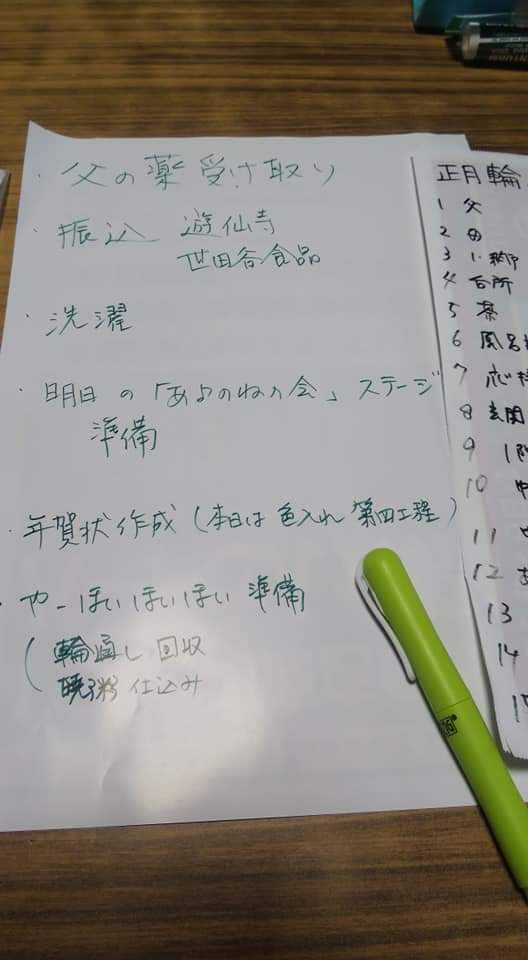 ・父の薬受け取り
・振込 遊仙寺
世田谷食品
・洗濯
・明日の「あよのねの会」ステージ
準備
・年賀状作成(本日は色入れ 第四工程)
・やーほいほいほい 準備
(輪通し 回収
暁粥 仕込み
正月輪
1 父
2 母
3 い
4 台所
5 茶
6 風呂
7
8 玄関
9 1階
10
11
12
13
14